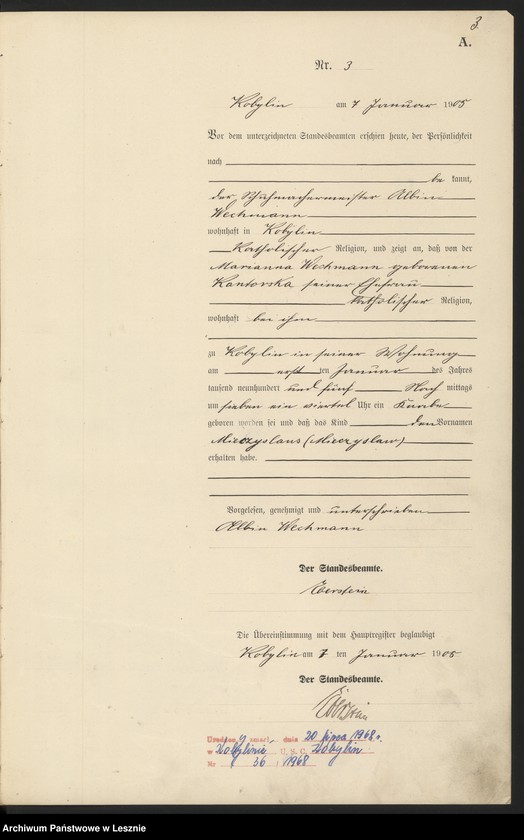 3.
A.
Nr. 3
Kobylin am 7 Januar 1905
Vor dem unterzeichneten Standesbeamten erschien heute, der Persönlichkeit
nach
be kannt,
der Schuhmachermeister Albin
Wechmann
wohnhaft in Kobylin
Katholischer Religion, und zeigt an, daß von der
Marianna Wechmann geborenen
Kantorska seiner Ehefrau
katholischer Religion,
wohnhaft bei ihm
zu Kobylin in seiner Wohnung
am ersten Januar des Jahres
tausend neunhundert und fünf Nach mittags
um sieben ein viertel Uhr ein Knabe
geboren worden sei und daß das Kind den Vornamen
Mieczyslaus (Mieczyslaw)
erhalten habe.
Vorgelesen, genehmigt und unterschrieben
Albin Wechmann
Der Standesbeamte.
Eberstein
Die Übereinstimmung mit dem Hauptregister beglaubigt
Kobylin am 7 ten Januar 1905
Der Standesbeamte.
Eberstein
zmarł dnia 20 lipca 1968 r.
w Kobylinie U. S. C. Kobylin
Nr 36 / 1968
Archiwum Państwowe w Lesznie